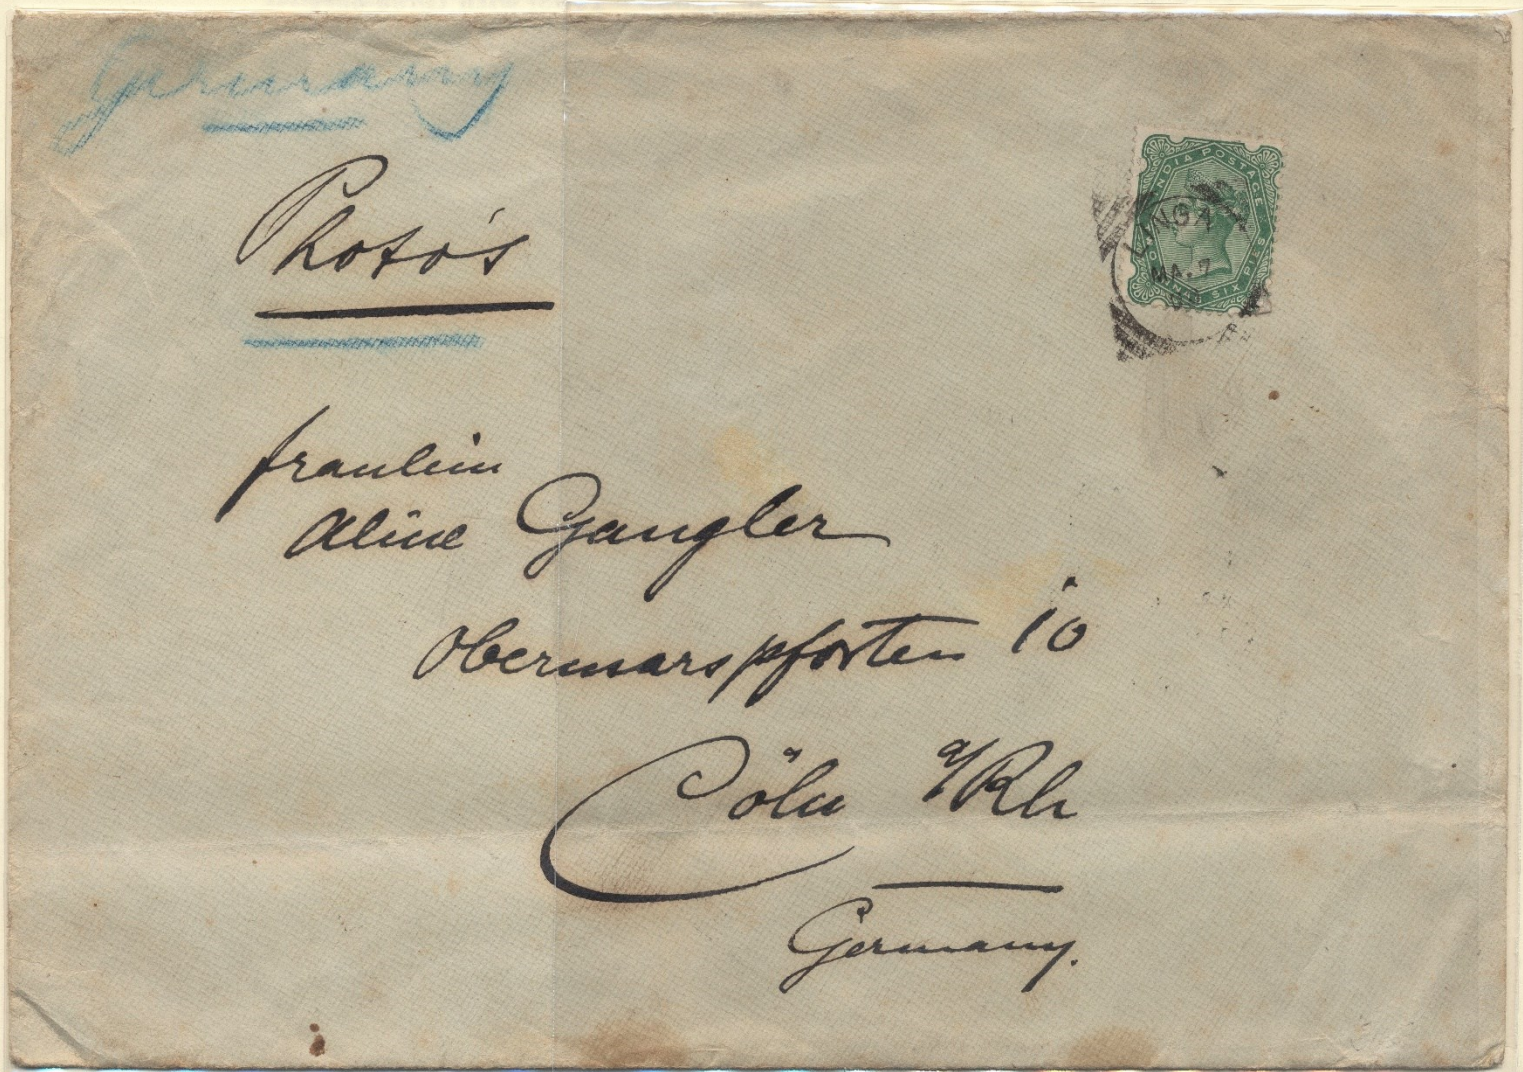 Germany
Photo's
INDIA POSTAGE
ANNAS SIX PIES
MA. 7
fraulein
Aline Gangler
Obermarspforten 10
Cöln a/Rh
Germany.